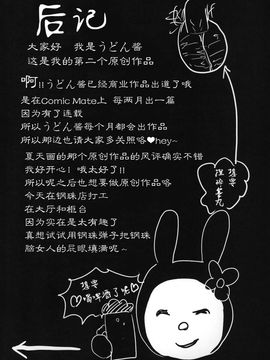 后记
大家好　我是うどん酱
这是我的第二个原创作品
啊!!うどん酱已经商业作品出道了哦
是在Comic Mate上　每两月出一篇
因为有了连载
所以うどん酱每个月都会出作品
所以那边也请大家多关照咯♥hey~
夏天画的那个原创作品的风评确实不错
我好开心！哦太好了!!
所以呢之后也想要做原创作品咯
今天在钢珠店打工
在大厅和柜台
因为实在是太有趣了
真想试试用钢珠弹子把钢珠
脑女人的屁眼填满呢~
想要